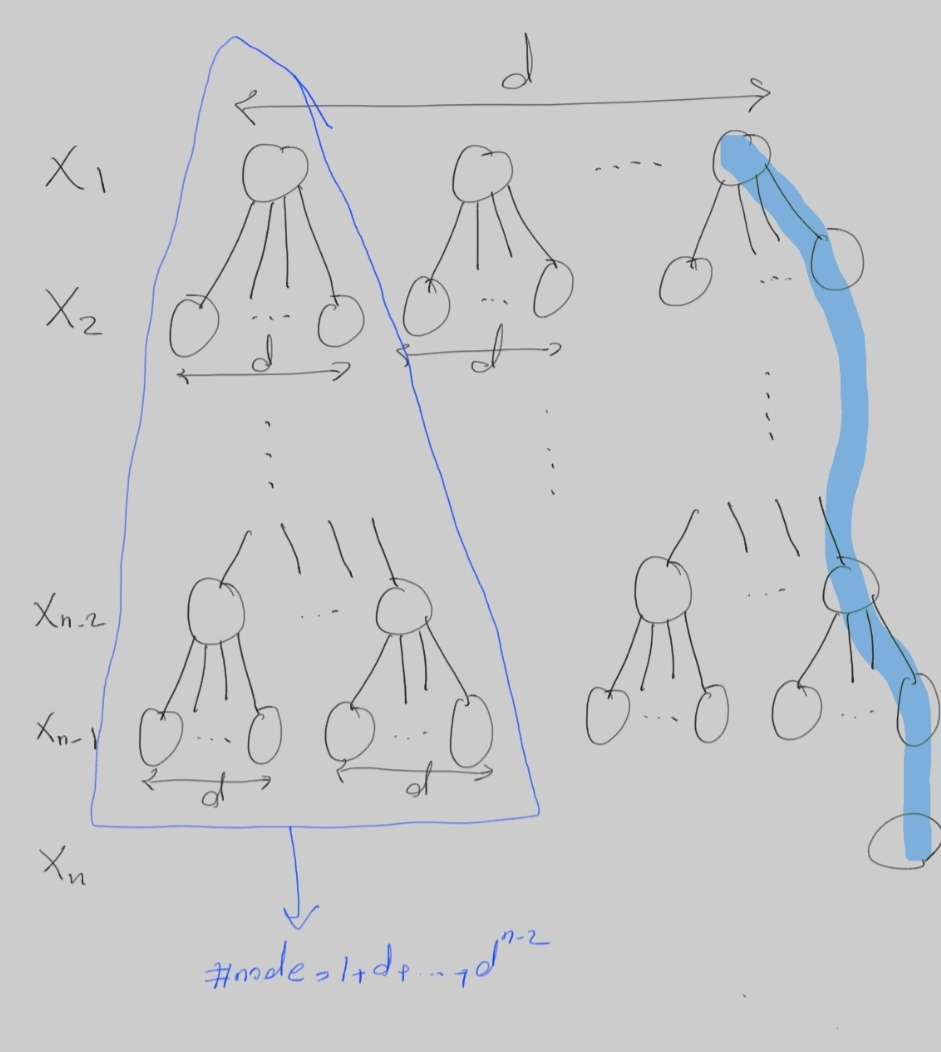 d
X₁
....
X₂
... ... ...
d d
Xₙ₋₂
... ...
Xₙ₋₁
... ... ... ...
d d
Xₙ
#node=1+d+...+d^{n-2}